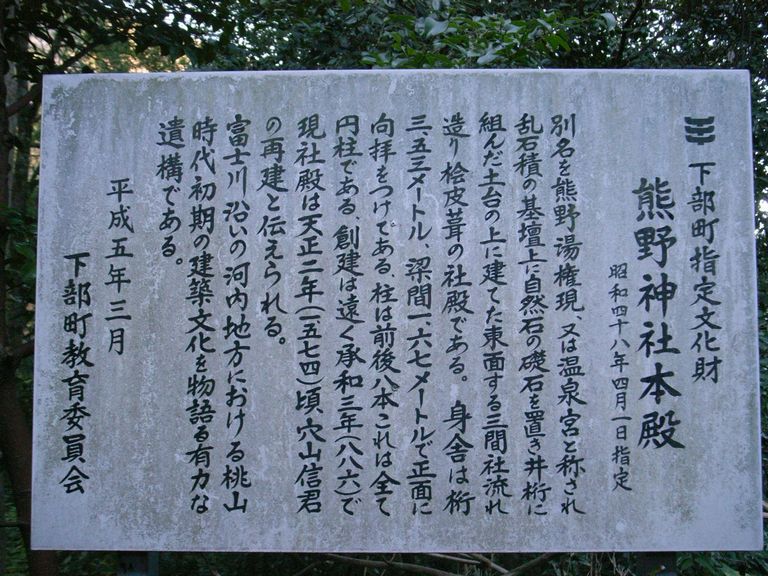 下部町指定文化財
熊野神社本殿
昭和四十八年四月一日指定
別名を熊野湯権現、又は温泉宮と称され
乱石積の基壇上に自然石の礎石を置き井桁に
組んだ土台の上に建てた東面する三間社流れ
造り桧皮葺の社殿である。身舎は桁
三、五三メートル、梁間一、六七メートルで正面に
向拝をつけてある、柱は前後八本これは全て
円柱である、創建は遠く承和三年(八八六)で
現社殿は天正二年(一五七四)頃、穴山信君
の再建と伝えられる。
富士川沿いの河内地方における桃山
時代初期の建築文化を物語る有力な
遺構である。
平成五年三月
下部町教育委員会